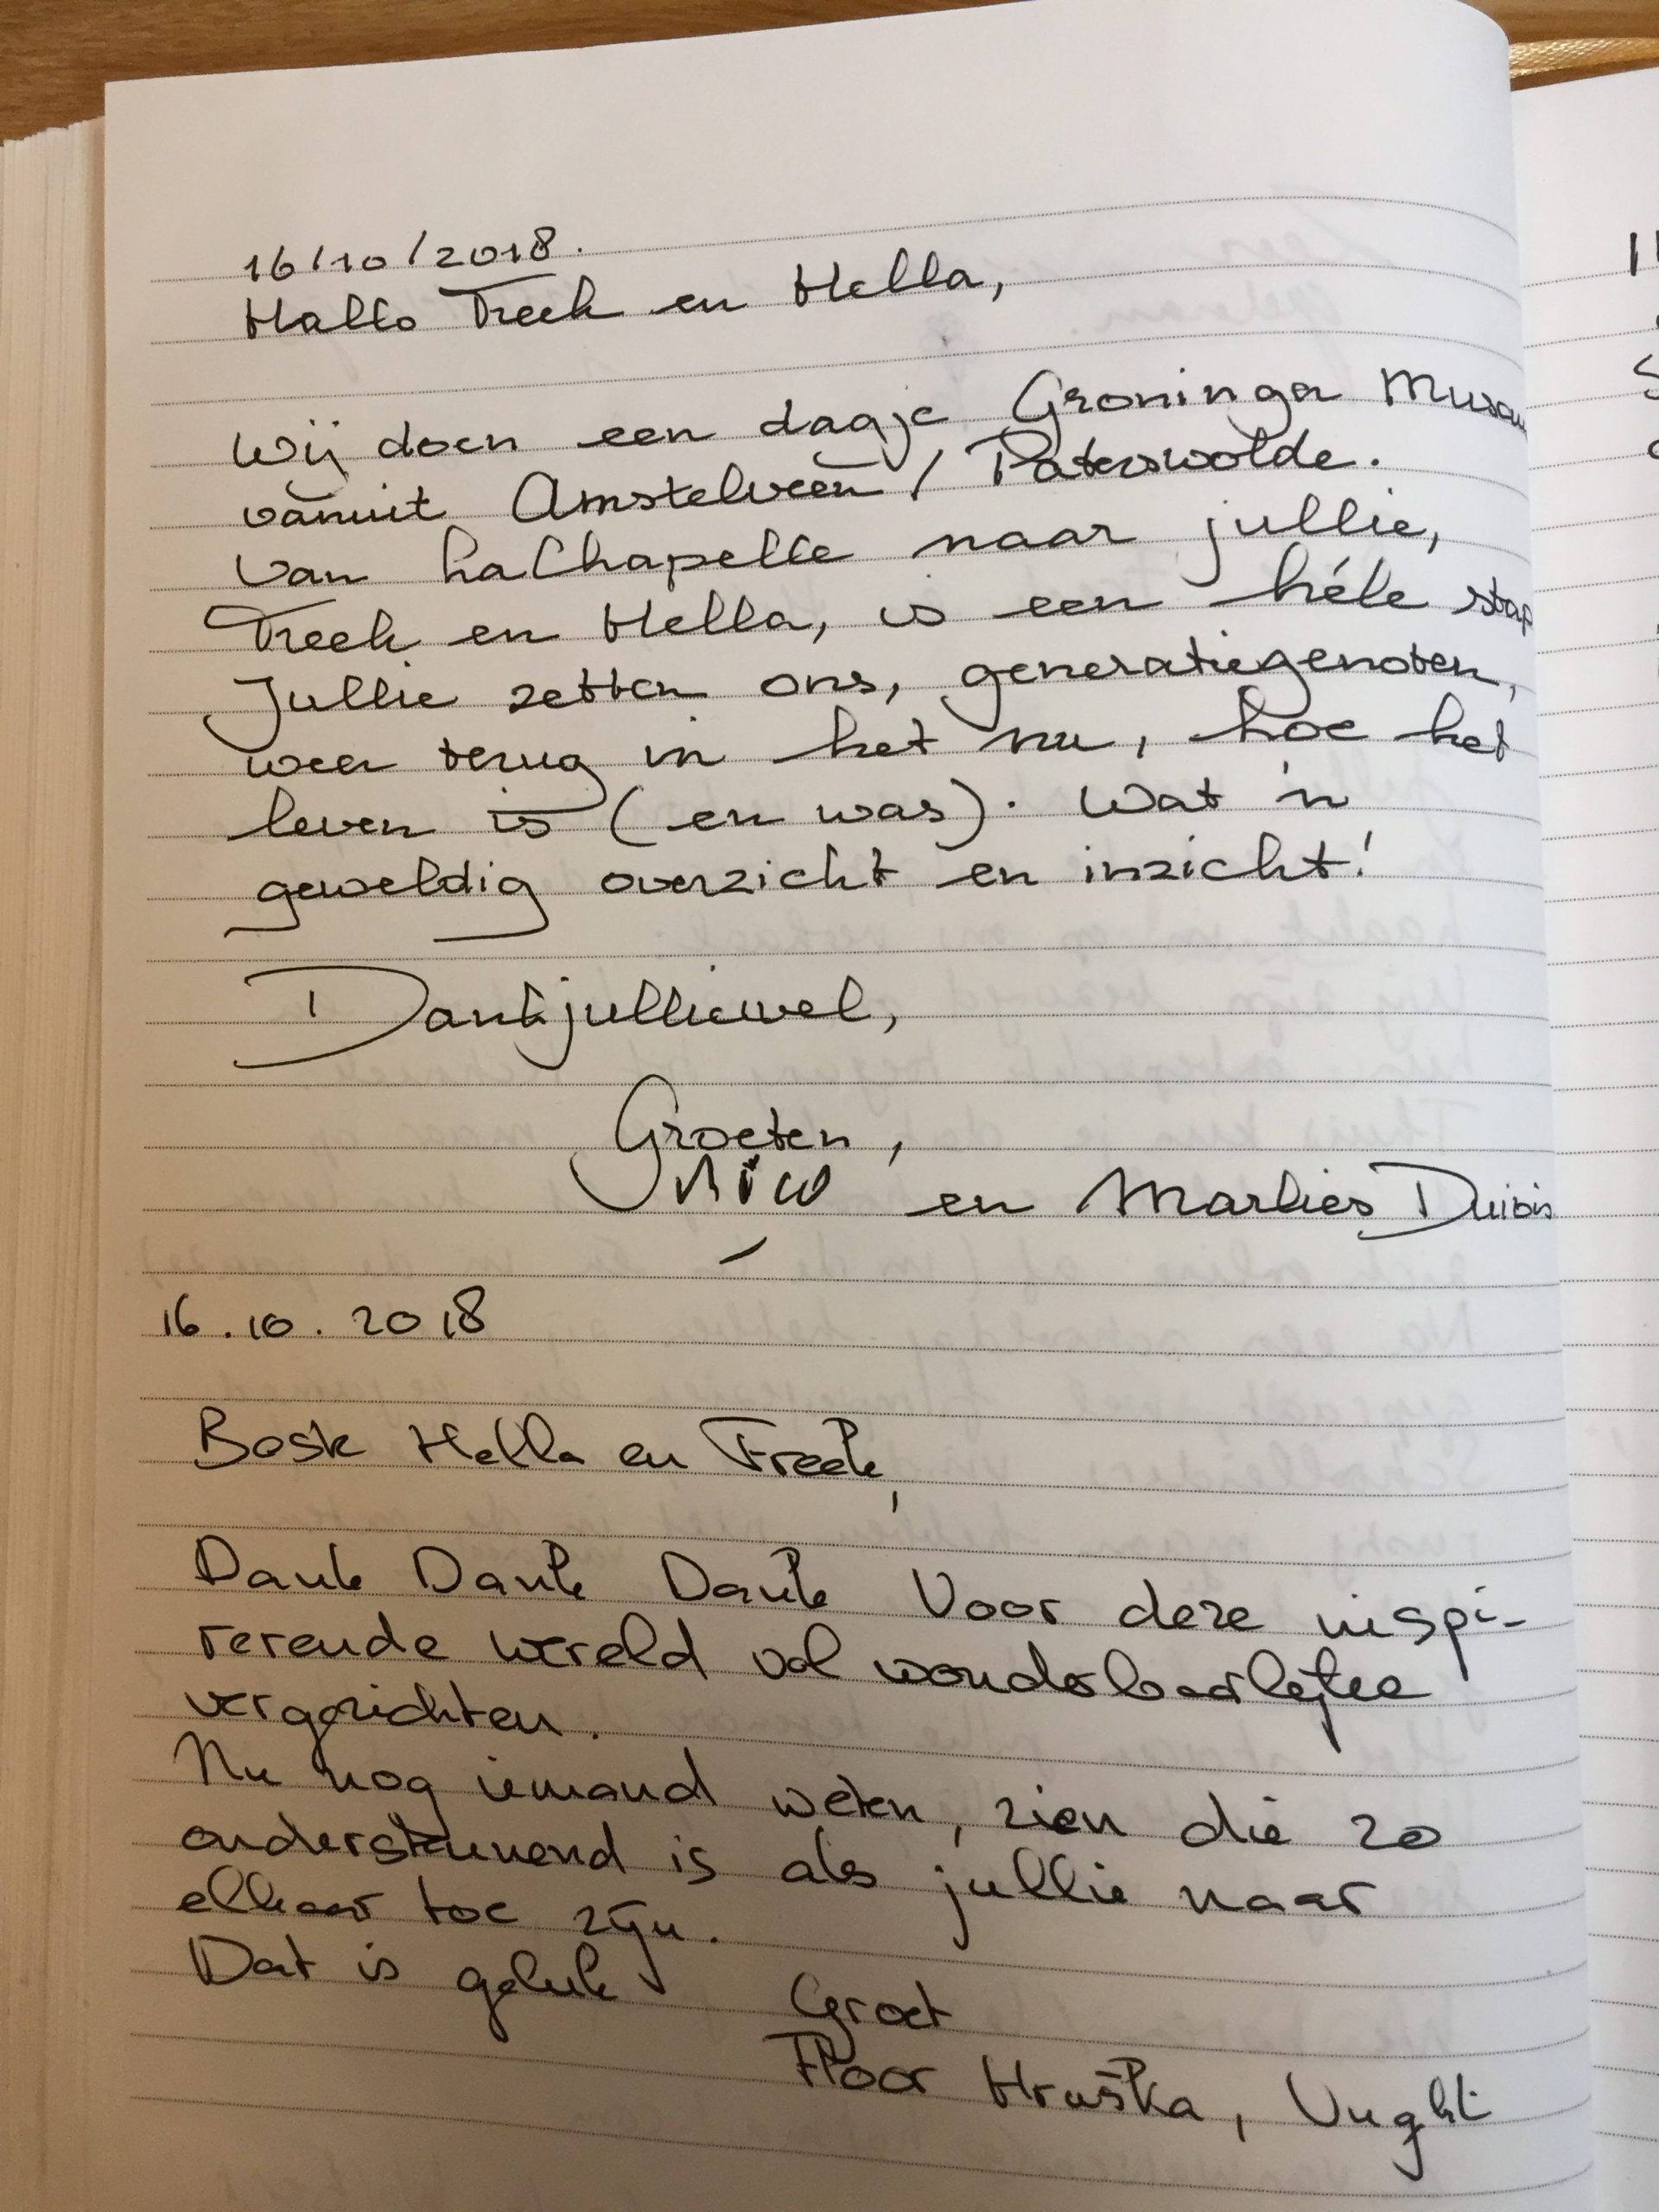 16/10/2018.
Hallo Freek en Hella,
Wij doen een dagje Groninger Museu
vanuit Amstelveen / Paterswolde.
Van LaChapelle naar jullie,
Freek en Hella, is een héle stap
Jullie zetten ons, generatiegenoten,
weer terug in het nu, hoe het
leven is (en was). Wat 'n
geweldig overzicht en inzicht!
Dankjulliewel,
Groeten,
Nico en Marlies
16.10.2018
Beste Hella en Freek,
Dank Dank Dank Voor deze inspi-
rerende wereld vol wonderbaarlijke
vergezichten.
Nu nog iemand weten, zien die zo
ondersteunend is als jullie naar
elkaar toe zijn.
Dat is geluk
Groet
Floor Hruška, Vught